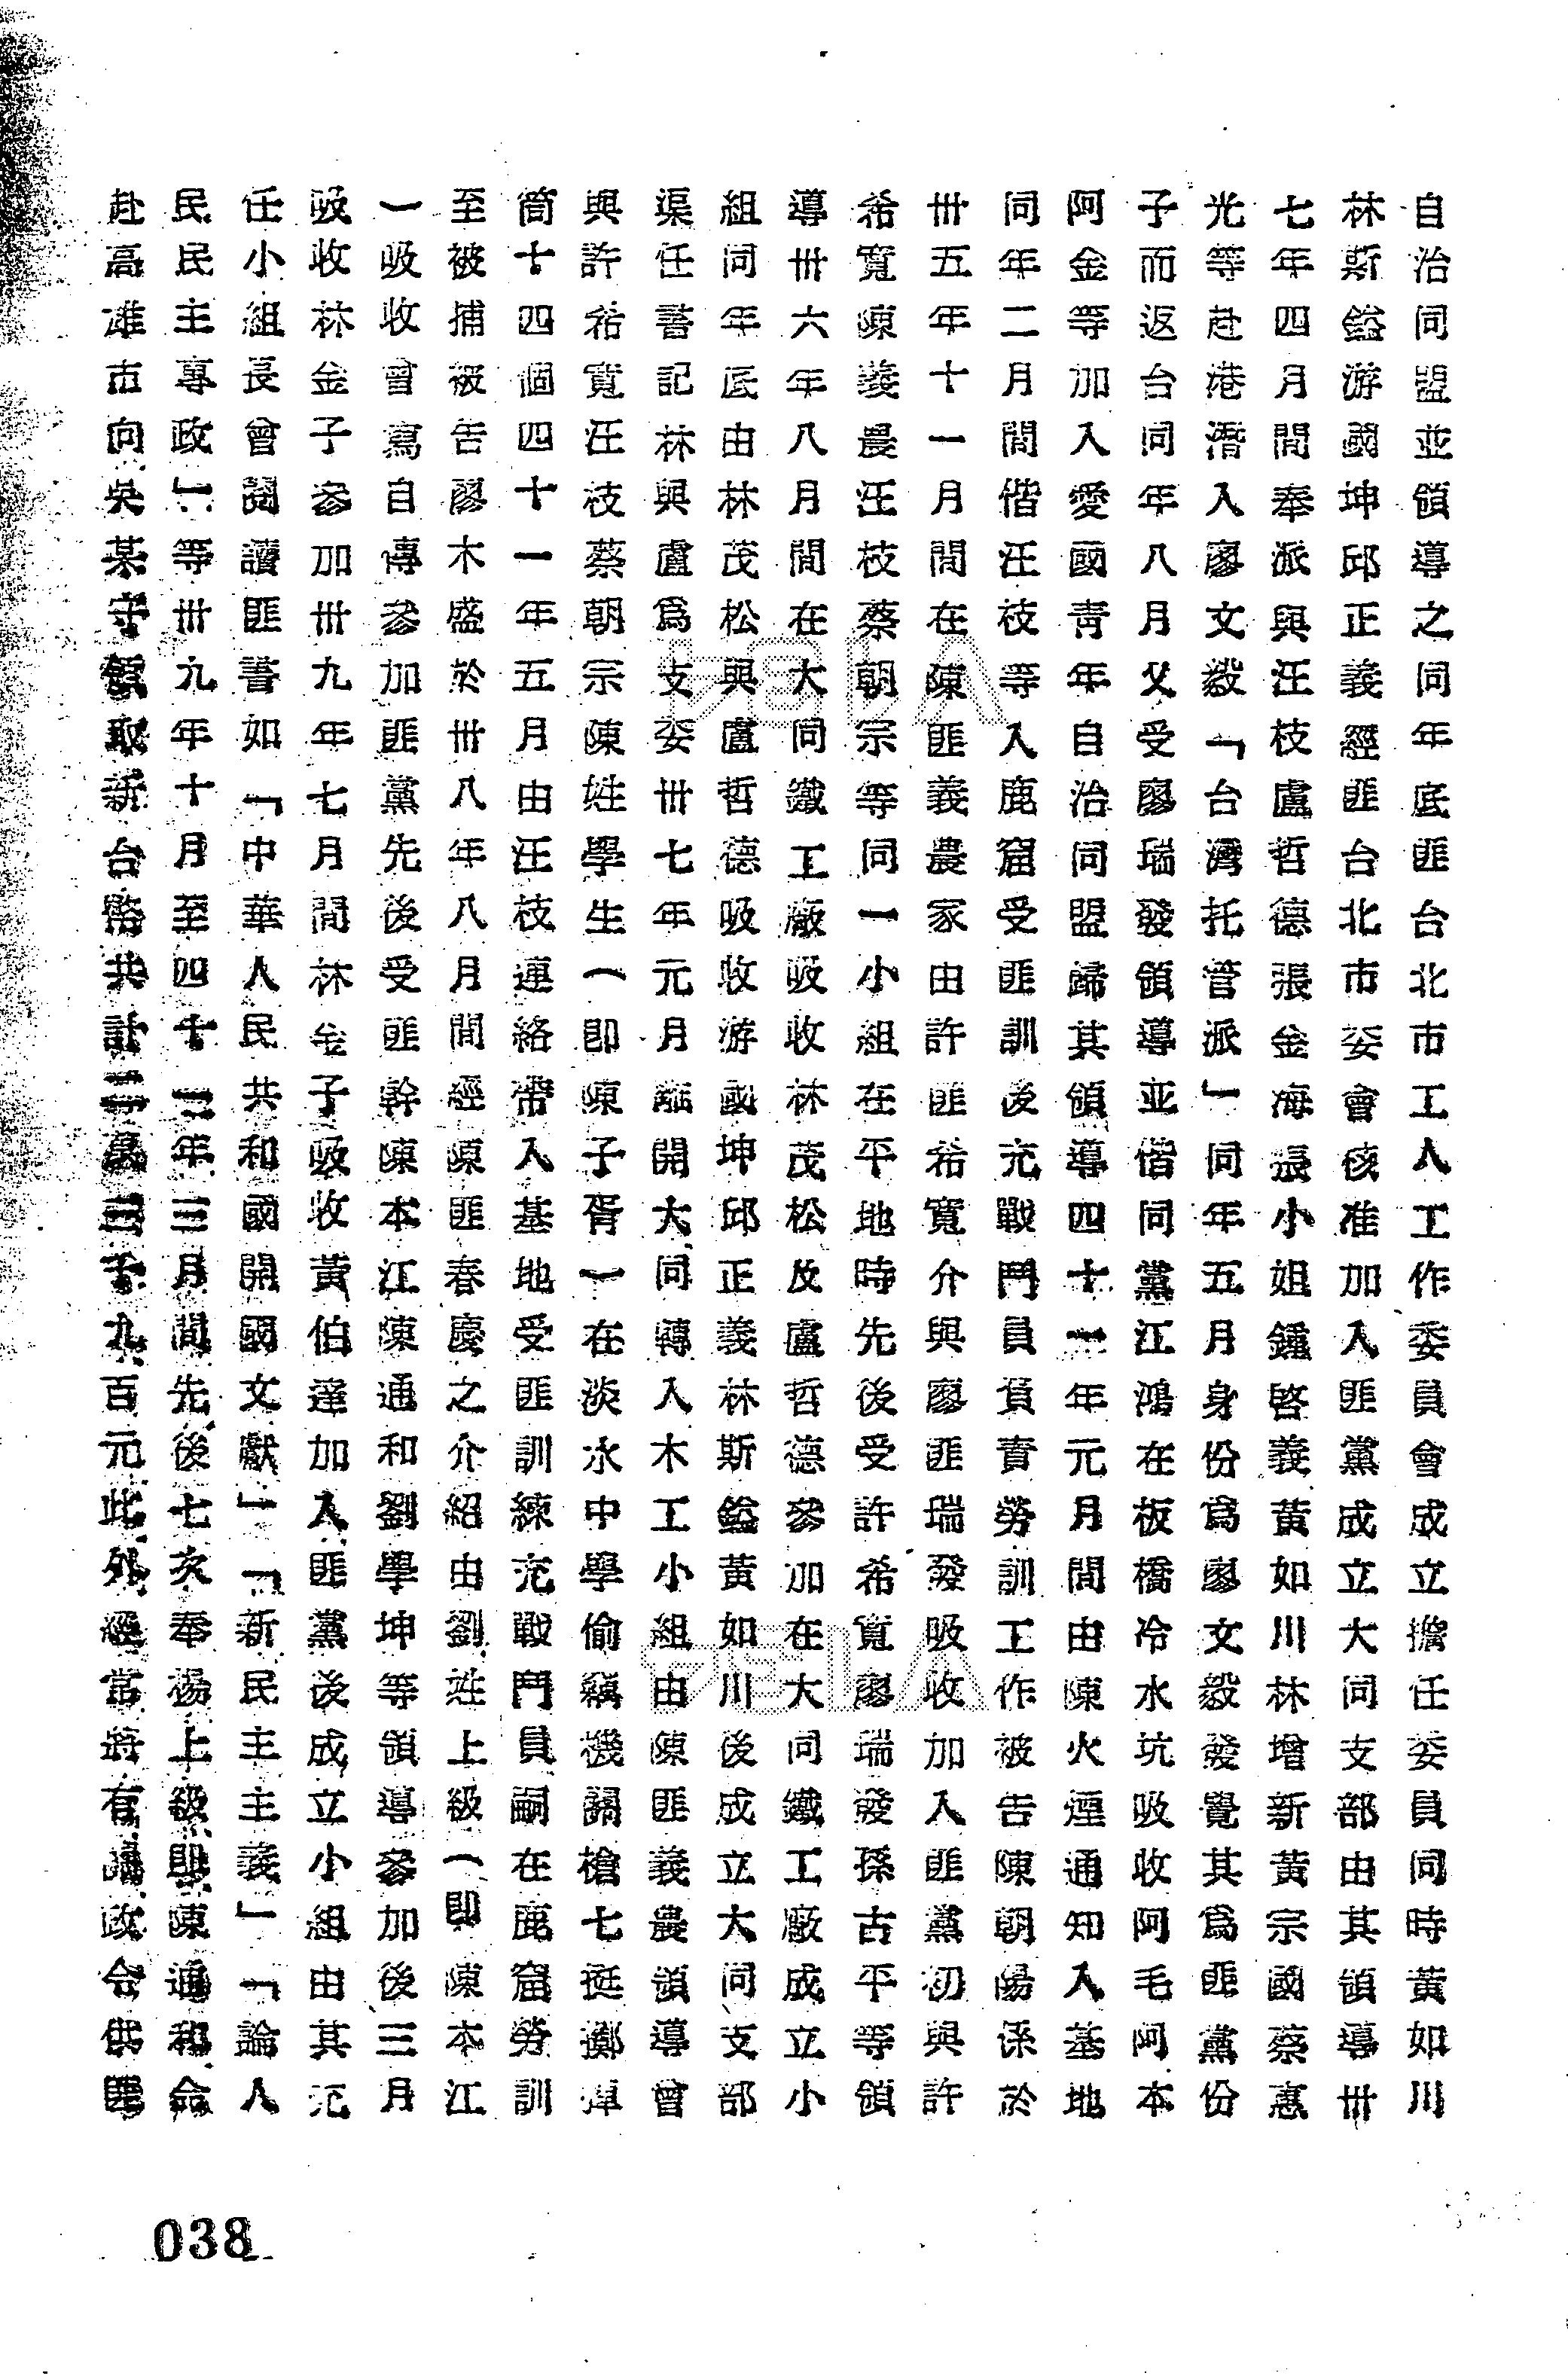 自治同盟並領導之同年底匪台北市工人工作委員會成立擔任委員同時黃如川
林斯鎰游國坤邱正義經匪台北市委會核准加入匪黨成立大同支部由其領導卅
七年四月間奉派與汪枝盧哲德張金海張小姐鍾啓義黃如川林增新黃宗國蔡惠
光等赴港潛入廖文毅「台灣托管派」同年五月身份爲廖文毅發覺其爲匪黨份
子而返台同年八月父受廖瑞發領導並偕同黨江鴻在板橋冷水坑吸收阿毛阿本
阿金等加入愛國青年自治同盟歸其領導四十一年元月間由陳火煙通知入基地
同年二月間偕汪枝等入鹿窟受匪訓後充戰鬥員負責勞訓工作被告陳朝陽係於
卅五年十一月間在陳匪義農家由許匪希寬介與廖匪瑞發吸收加入匪黨初與許
希寬陳義農汪枝蔡朝宗等同一小組在平地時先後受許希寬廖瑞發孫古平等領
導卅六年八月間在大同鐵工廠吸收林茂松及盧哲德參加在大同鐵工廠成立小
組同年底由林茂松與盧哲德吸收游國坤邱正義林斯鎰黃如川後成立大同支部
渠任書記林與盧爲支委卅七年元月離開大同轉入木工小組由陳匪義農領導曾
與許希寬汪枝蔡朝宗陳姓學生（即陳子胥）在淡水中學偷竊機關槍七挺擲彈
筒十四個四十一年五月由汪枝連絡帶入基地受匪訓練充戰鬥員嗣在鹿窟勞訓
至被捕被告廖木盛於卅八年八月間經陳匪春慶之介紹由劉姓上級（即陳本江
一吸收曾寫自傳參加匪黨先後受匪幹陳本江陳通和劉學坤等領導參加後三月
吸收林金子參加卅九年七月間林金子吸收黃伯達加入匪黨後成立小組由其充
任小組長曾閱讀匪書如「中華人民共和國開國文獻」「新民主主義」「論人
民民主專政」等卅九年十月至四十二年三月間先後七次奉楊上級即陳通和命
赴高雄市向吳某守領取新台幣共計二萬三千九百元外此外經常將有關政令供匪
038